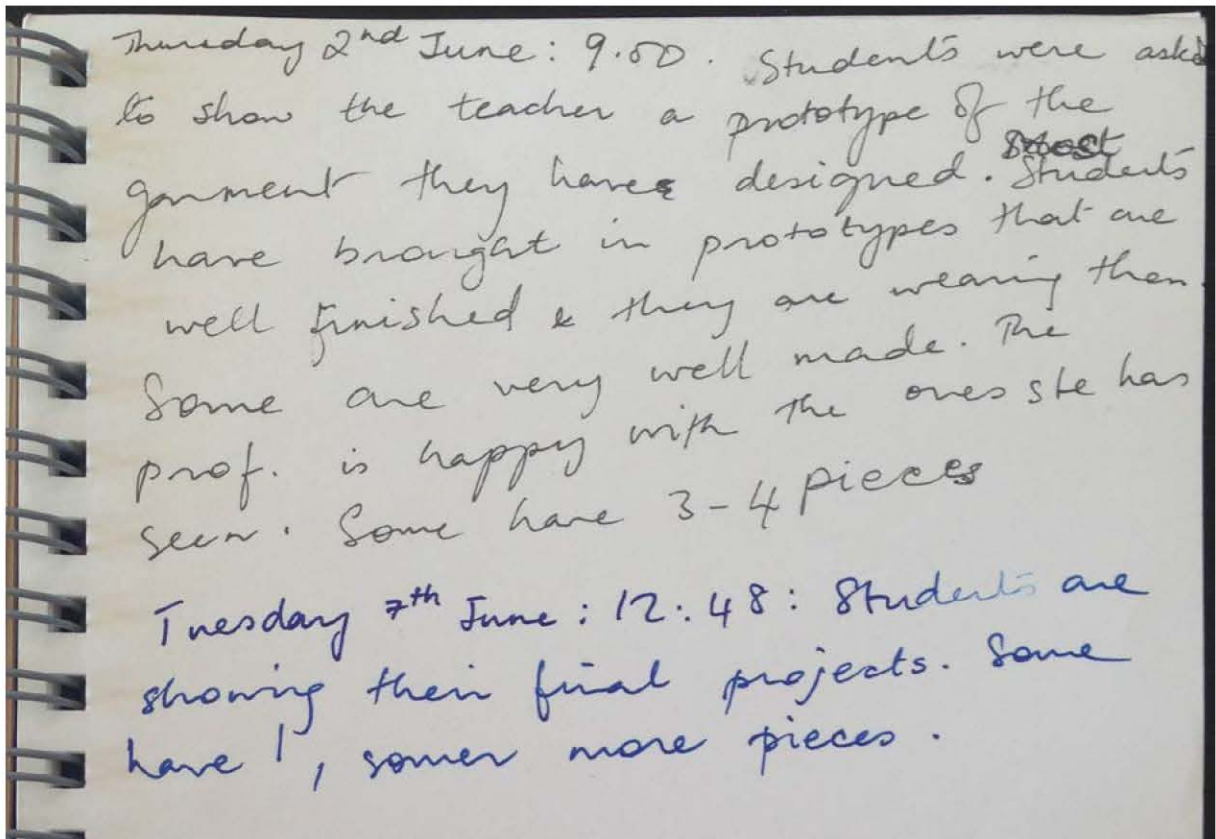 Thursday 2nd June: 9.50. Students were asked
to show the teacher a prototype of the
garment they have designed. Students
have brought in prototypes that are
well finished & they are wearing them.
Some are very well made. The
prof. is happy with the ones she has
seen. Some have 3-4 pieces
Tuesday 7th June: 12:48: Students are
showing their final projects. Some
have 1, somer more pieces.